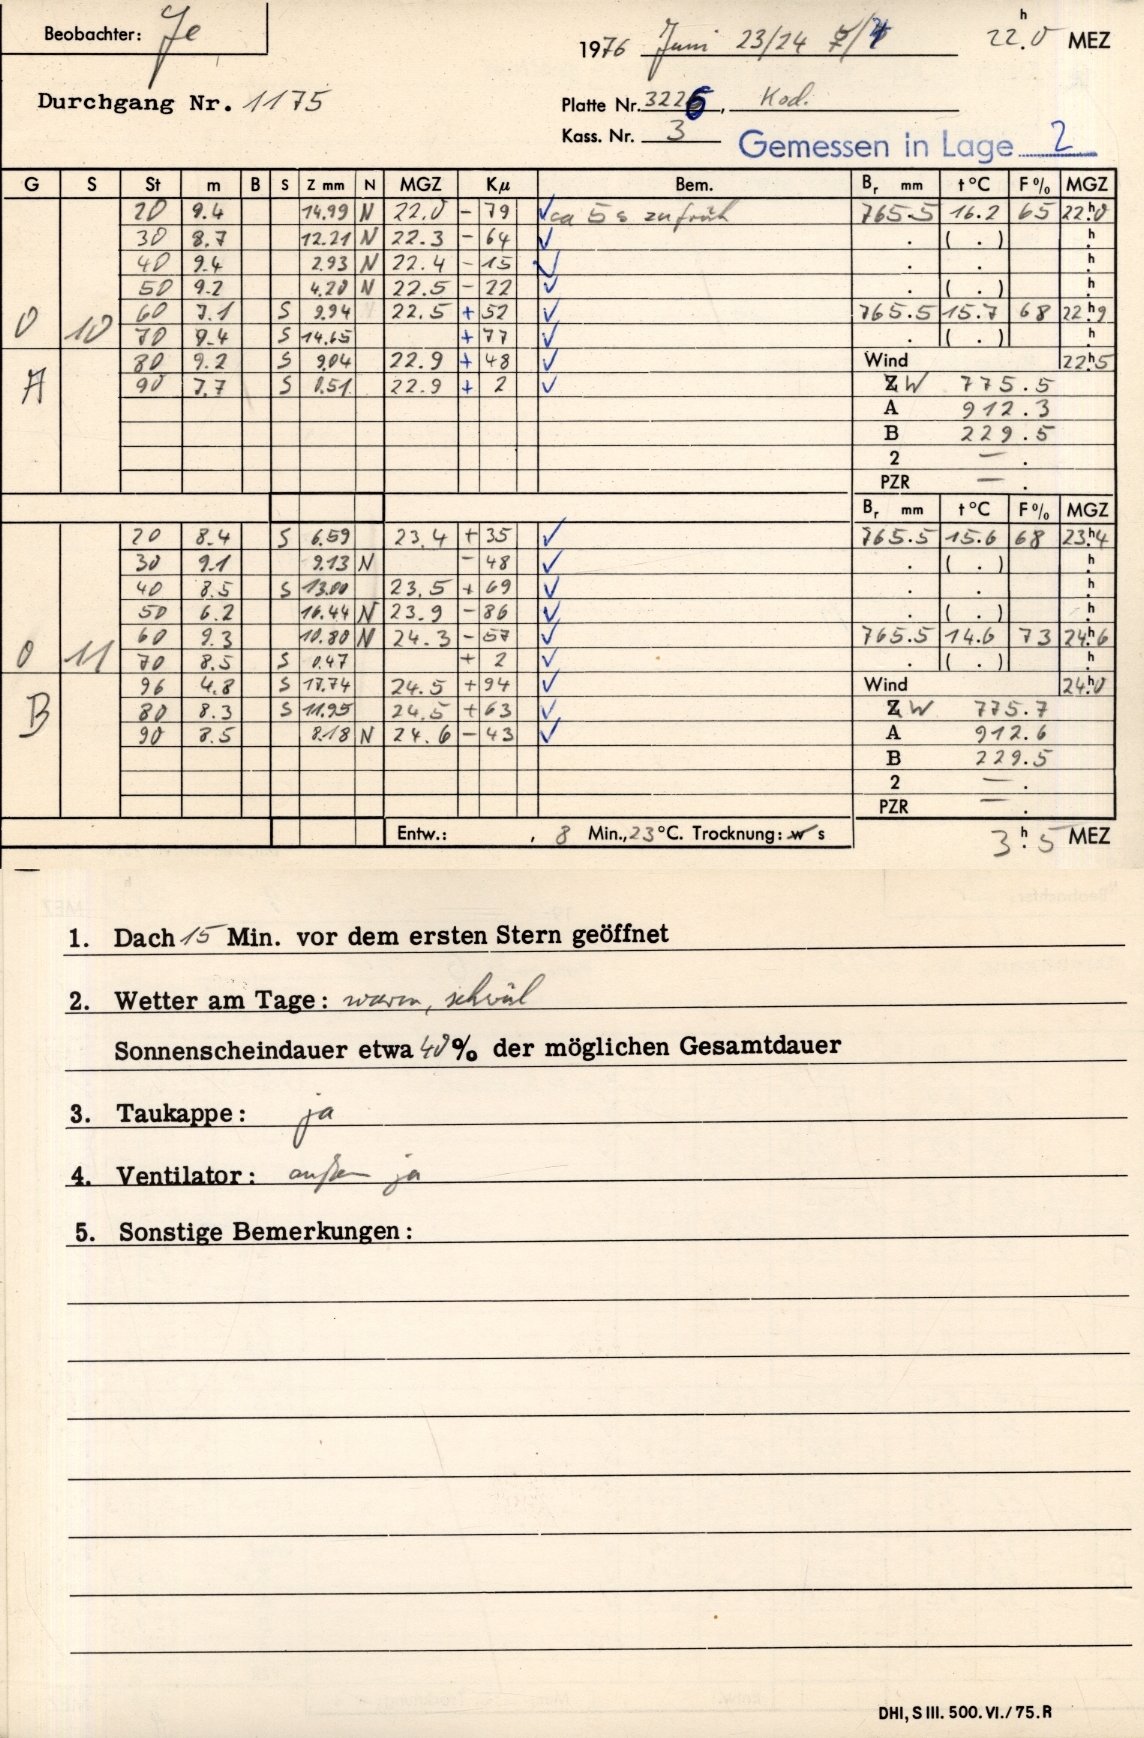 Beobachter: Je
1976 Juni 23/24 22.0 h MEZ
Durchgang Nr. 1175
Platte Nr. 3226, Kod.
Kass. Nr. 3
Gemessen in Lage 2
G S St m B S Z mm N MGZ Kμ Bem. Br mm t°C F% MGZ
20 9.4 14.99 N 22.0 - 79 ✓ ca 5 s zu früh 765.5 16.2 65 22h0
30 8.7 12.21 N 22.3 - 64 ✓ . ( . ) h.
40 9.4 2.93 N 22.4 - 15 ✓ . . h.
50 9.2 4.20 N 22.5 - 22 ✓ . ( . ) h.
60 7.1 S 9.94 22.5 + 52 ✓ 765.5 15.7 68 22h9
0 10 70 9.4 S 14.65 + 77 ✓ . ( . ) h.
80 9.2 S 9.04 22.9 + 48 ✓ Wind 22h5
A 90 7.7 S 0.51 22.9 + 2 ✓ Z W 775.5
A 912.3
B 229.5
2 — .
PZR — .
Br mm t°C F% MGZ
20 8.4 S 6.59 23.4 + 35 ✓ 765.5 15.6 68 23h4
30 9.1 9.13 N - 48 ✓ . ( . ) h.
40 8.5 S 13.00 23.5 + 69 ✓ . . h.
50 6.2 16.44 N 23.9 - 86 ✓ . ( . ) h.
60 9.3 10.80 N 24.3 - 57 ✓ 765.5 14.6 73 24h6
0 11 70 8.5 S 0.47 + 2 ✓ . ( . ) h.
96 4.8 S 17.74 24.5 + 94 ✓ Wind 24h0
B 80 8.3 S 11.95 24.5 + 63 ✓ Z W 775.7
90 8.5 8.18 N 24.6 - 43 ✓ A 912.6
B 229.5
2 — .
PZR — .
Entw.: , 8 Min., 23 °C. Trocknung: w s 3h.5 MEZ
1. Dach 15 Min. vor dem ersten Stern geöffnet
2. Wetter am Tage: warm, schwül
Sonnenscheindauer etwa 40% der möglichen Gesamtdauer
3. Taukappe: ja
4. Ventilator: außen ja
5. Sonstige Bemerkungen:
DHI, S III. 500. VI./75. R